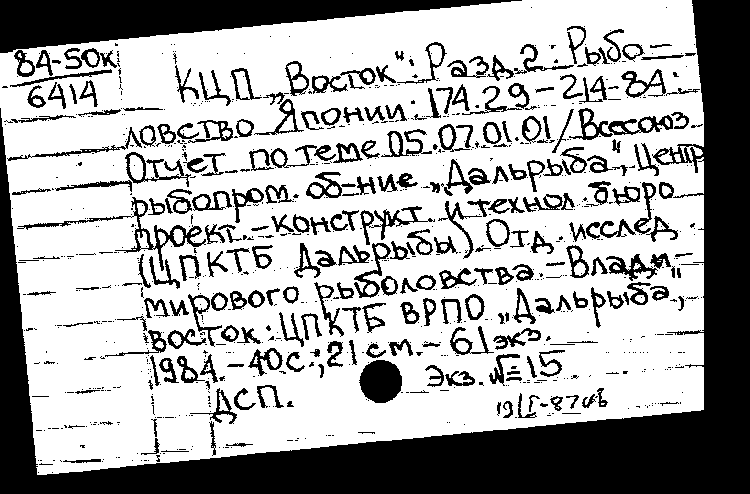 84-50к
6414
КЦП „Восток": Разд. 2: Рыбо-
ловство Японии: 174.29-214-84:
Отчет по теме 05.07.01.01/Всесоюз.
рыбопром. об-ние „Дальрыба", Центр.
проект.-конструкт. и технол. бюро
(ЦПКТБ Дальрыбы). Отд. исслед.
мирового рыболовства.-Влади-
восток: ЦПКТБ ВРПО „Дальрыба",
1984.-40с.; 21см.- 61экз.
Экз. №15
ДСП.